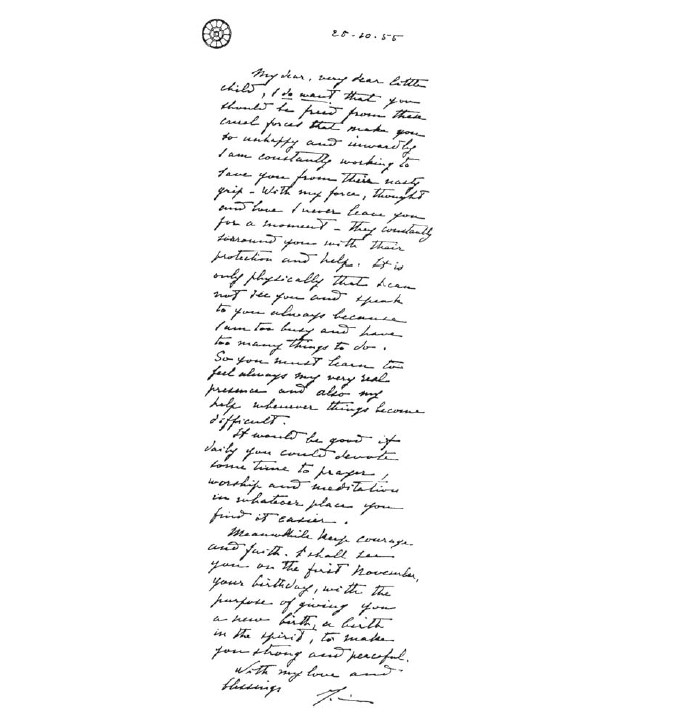 25-10-55
My dear, very dear little
child, I do want that you
should be freed from these
cruel forces that make you
so unhappy and inwardly
I am constantly working to
save you from their nasty
grip - With my force, thought
and love I never leave you
for a moment - they constantly
surround you with their
protection and help. It is
only physically that I can
not see you and speak
to you always because
I am too busy and have
too many things to do.
So you must learn to
feel always my very real
presence and also my
help whenever things become
difficult.
It would be good if
daily you could devote
some time to prayer,
worship and meditation
in whatever place you
find it easier.
Meanwhile keep courage
and faith. I shall see
you on the first November,
your birthday, with the
purpose of giving you
a new birth, a birth
in the spirit, to make
you strong and peaceful.
With my love and
blessings